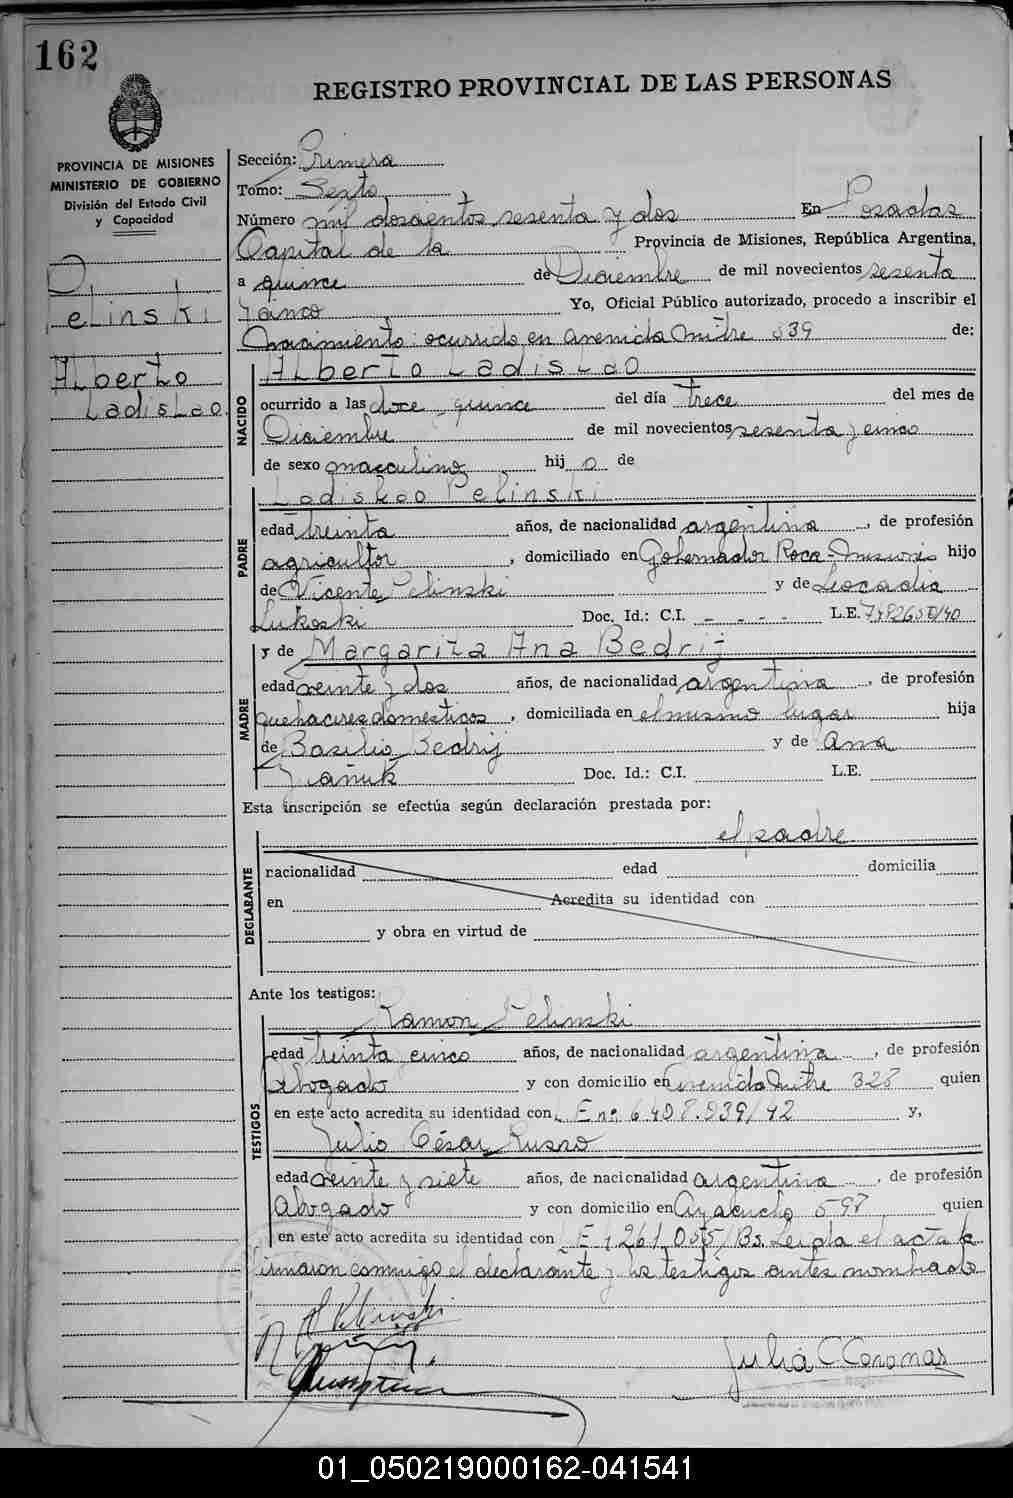 162
REGISTRO PROVINCIAL DE LAS PERSONAS
PROVINCIA DE MISIONES
MINISTERIO DE GOBIERNO
División del Estado Civil
y Capacidad
Pelinski
Alberto
Ladislao
Sección: Primera
Tomo: Sexto
Número mil doscientos sesenta y dos En Posadas
Capital de la Provincia de Misiones, República Argentina,
a quince de Diciembre de mil novecientos sesenta
y cinco Yo, Oficial Público autorizado, procedo a inscribir el
Nacimiento: ocurrido en avenida Mitre 339 de:
NACIDO
Alberto Ladislao
ocurrido a las doce quince del día trece del mes de
Diciembre de mil novecientos sesenta y cinco
de sexo masculino hij o de
PADRE
Ladislao Pelinski
edad treinta años, de nacionalidad argentina, de profesión
agricultor, domiciliado en Gobernador Roca-Misiones hijo
de Vicente Pelinski y de Leocadia
Lukoski Doc. Id.: C.I. - - - - L.E.
MADRE
y de Margarita Ana Bedrij
edad veinte y dos años, de nacionalidad argentina, de profesión
quehaceres domesticos, domiciliada en el mismo lugar hija
de Basilio Bedrij y de Ana
Doc. Id.: C.I. L.E.
Esta inscripción se efectúa según declaración prestada por:
el padre
DECLARANTE
nacionalidad edad domicilia
en Acredita su identidad con
y obra en virtud de
Ante los testigos:
TESTIGOS
Ramón Pelinski
edad treinta cinco años, de nacionalidad argentina, de profesión
abogado y con domicilio en avenida Mitre 328 quien
en este acto acredita su identidad con L. E nº 6.408.939/42 y,
Julio César Russo
edad veinte y siete años, de nacionalidad argentina, de profesión
abogado y con domicilio en Ayacucho 597 quien
en este acto acredita su identidad con L E 7.261.055/Bs. Leida el acta la
firmaron conmigo el declarante y los testigos antes nombrados
01_050219000162-041541